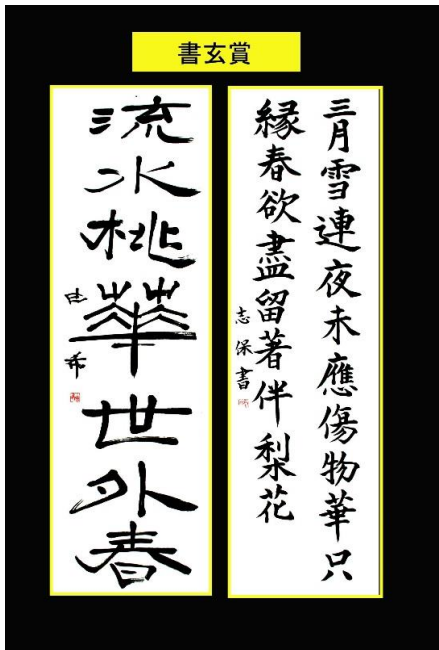 書玄賞
三月雪連夜未應傷物華只
縁春欲盡留著伴梨花
志保書
流水桃華世外春
由希